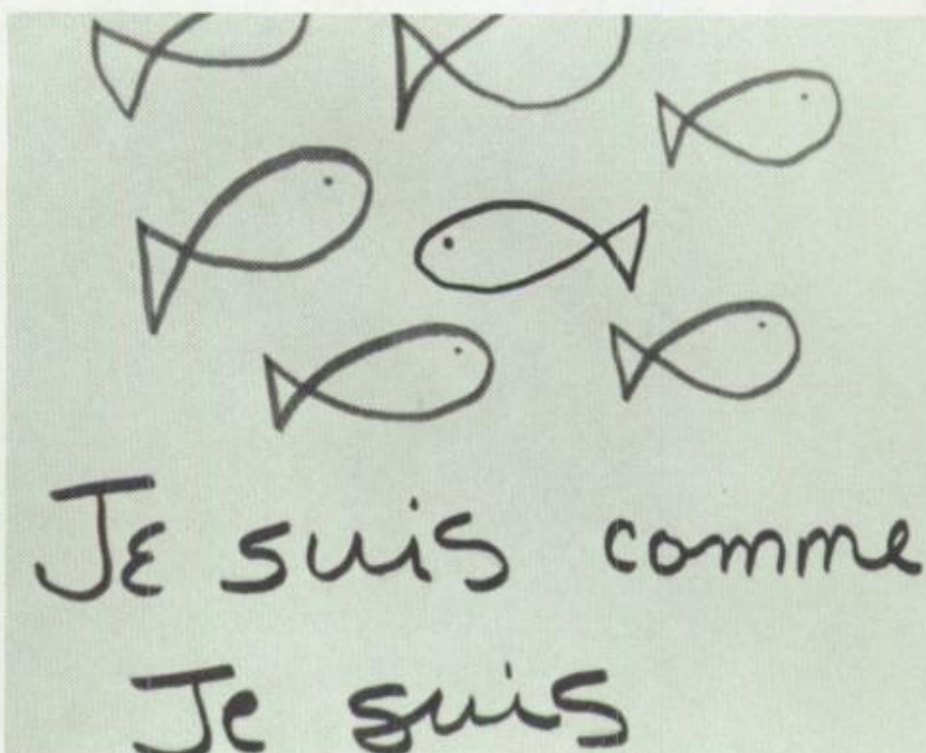 Je suis comme
Je suis